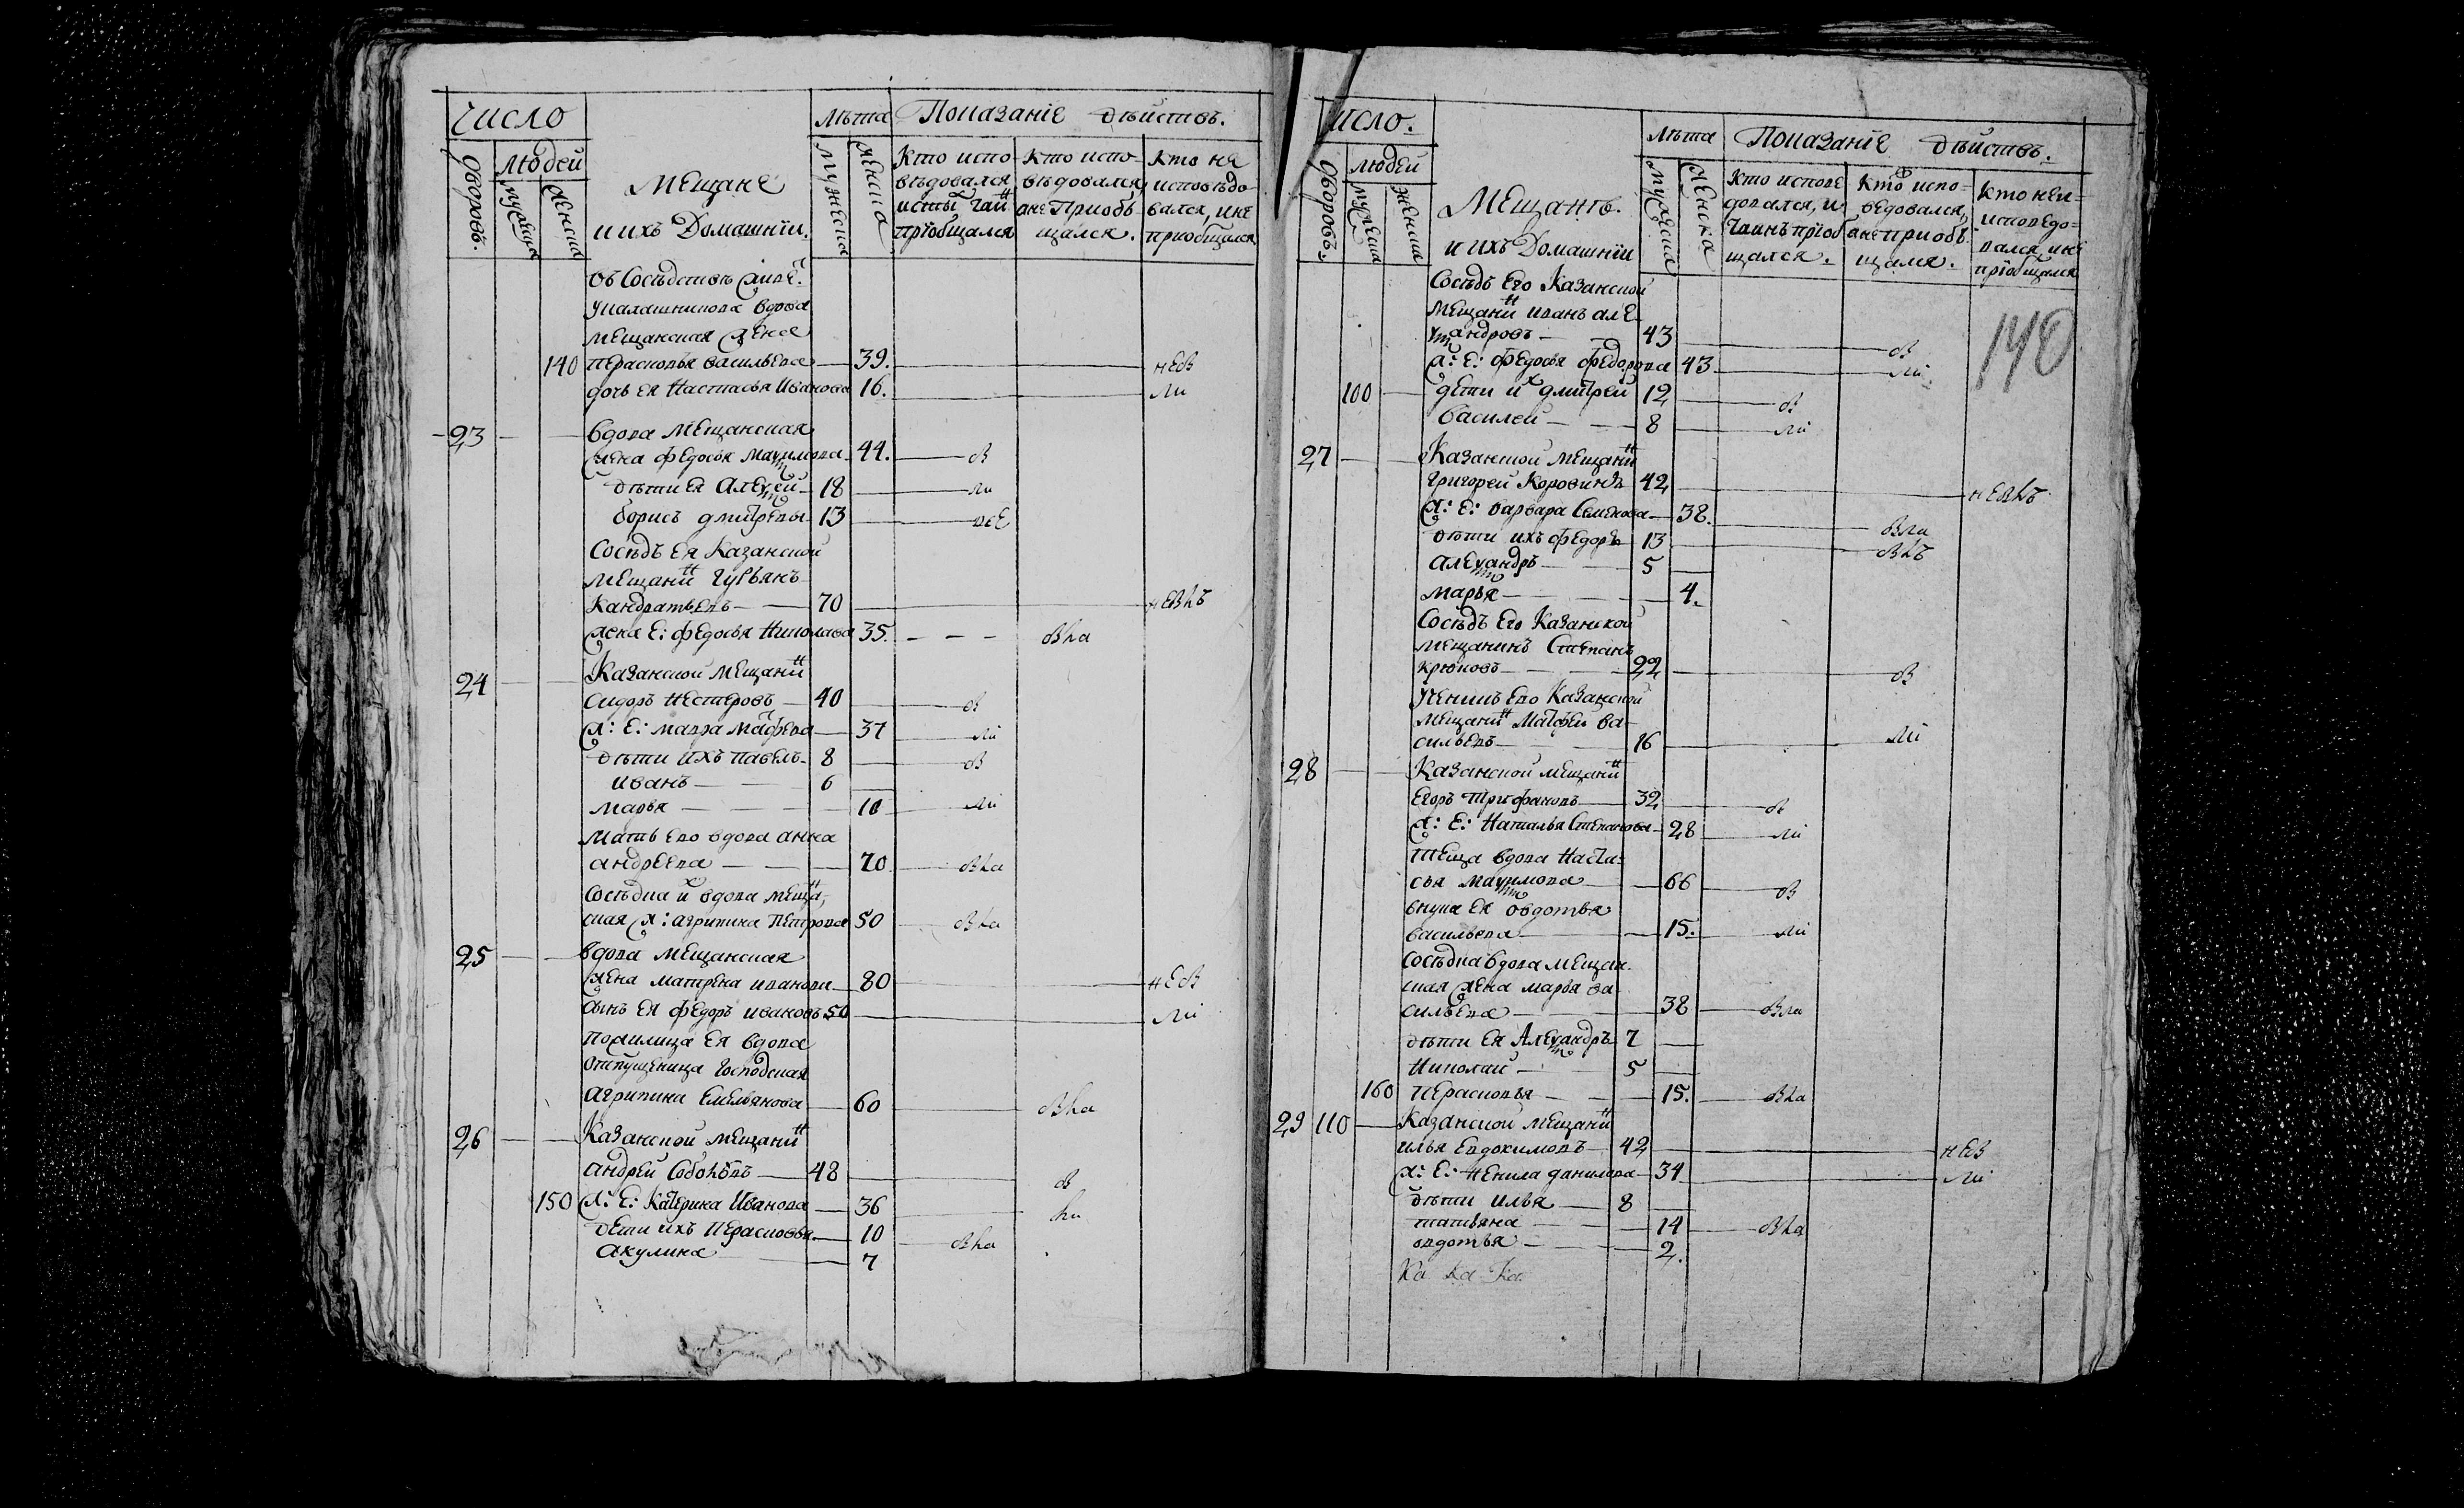 Число
Лѣта Показанiе дѣиствъ.
дворовъ.
людей
мужеска
женска
Мещане
и ихъ Домашнiи.
мужеска
женска
Кто испо-
вѣдовался
и сты͏̃ таи͏ͫ
прiобщался
Кто испо-
вѣдовался,
а не Приоб
щался.
Кто не
исповѣдо-
вался, и не
приобщался
въ Сосѣдствѣ
укалашникова вдова
мещанская жена
140 Перасковья васильева 39. нев
дочь ея Настасья Иванова 16. ли
23 вдова Мещанская
жена федосья Маѯимова 44. в
дѣти ея Алеѯей 18 ли
борисъ дмитревы 13 все
Сосѣдъ ея Казанской
мещанинъ Гурьянъ
Кандратьевъ 70 невлъ
жена Е: федосья Николаева 35. вла
24 Казанской Мещанинъ
сидоръ Нестеровъ 40 в
ж: Е: мавра Матфева 37 ли
дѣти ихъ павелъ 8 в
иванъ 6
марья 10 ли
Мать ево вдова анна
андреева 70 вла
Сосѣдка их вдова меща,
ская ж: агрипина Петрова 50 вла
25 вдова мещанская
жена матрена иванова 80 нев
сынъ ея федоръ ивановъ 50 ли
пожилица ея вдова
отпущеница Господская
агрипина Емельянова 60 вла
26 Казанской мещанинъ
андрей Соболевъ 48 в
150 ж: Е: Катерина Иванова 36 ли
дети ихъ Перасковья 10 вла
акулина 7
исло.
Лѣта Показанiе дѣйствъ.
дворовъ.
людей
мужеска
женска
Мещанѣ.
и ихъ Домашнiи
мужеска
женска
Кто испове
довался, и
таинъ прiоб
щался.
Кто испо-
ведовался,
а не приобъ
щался.
Кто не и-
споведо-
вался, и не
прiобщался
140
Сосѣдъ Его Казанской
мещанинъ иванъ але
ѯандровъ 43 в
ж: Е: федосья федорова 43 ли
100 дети их дмитрей 12 в
василей 8 ли
27 Казанской мещанинъ
григорей Коровинъ 42 невлъ
ж: Е: варвара Семенова 38. вла
дѣти ихъ федоръ 13 влъ
алеѯандръ 5
марья 4.
Сосѣдъ Его Казанской
мещанинъ Степанъ
крюковъ 22 в
ученикъ Ево Казанской
мещанинъ Матфей ва
сильевъ 16 ли
28 Казанской мещанинъ
Егоръ Трифановъ 32 в
ж: Е: Наталья Степанова 28 ли
теща вдова Наста-
сья маѯимова 66 в
внука ея овдотья
васильева 15. ли
Сосѣдка вдова мещан
ская жена марья ва
сильева 38 вла
дѣти ея Алеѯандръ 7
Николай 5
160 Перасковья 15. вла
29 110 Казанской мещанинъ
илья Евдокимовъ 42 нев
ж: Е: Ненила данилова 34 ли
дѣти илья 8
татьяна 14 вла
овдотья 2.
Ка ка ка